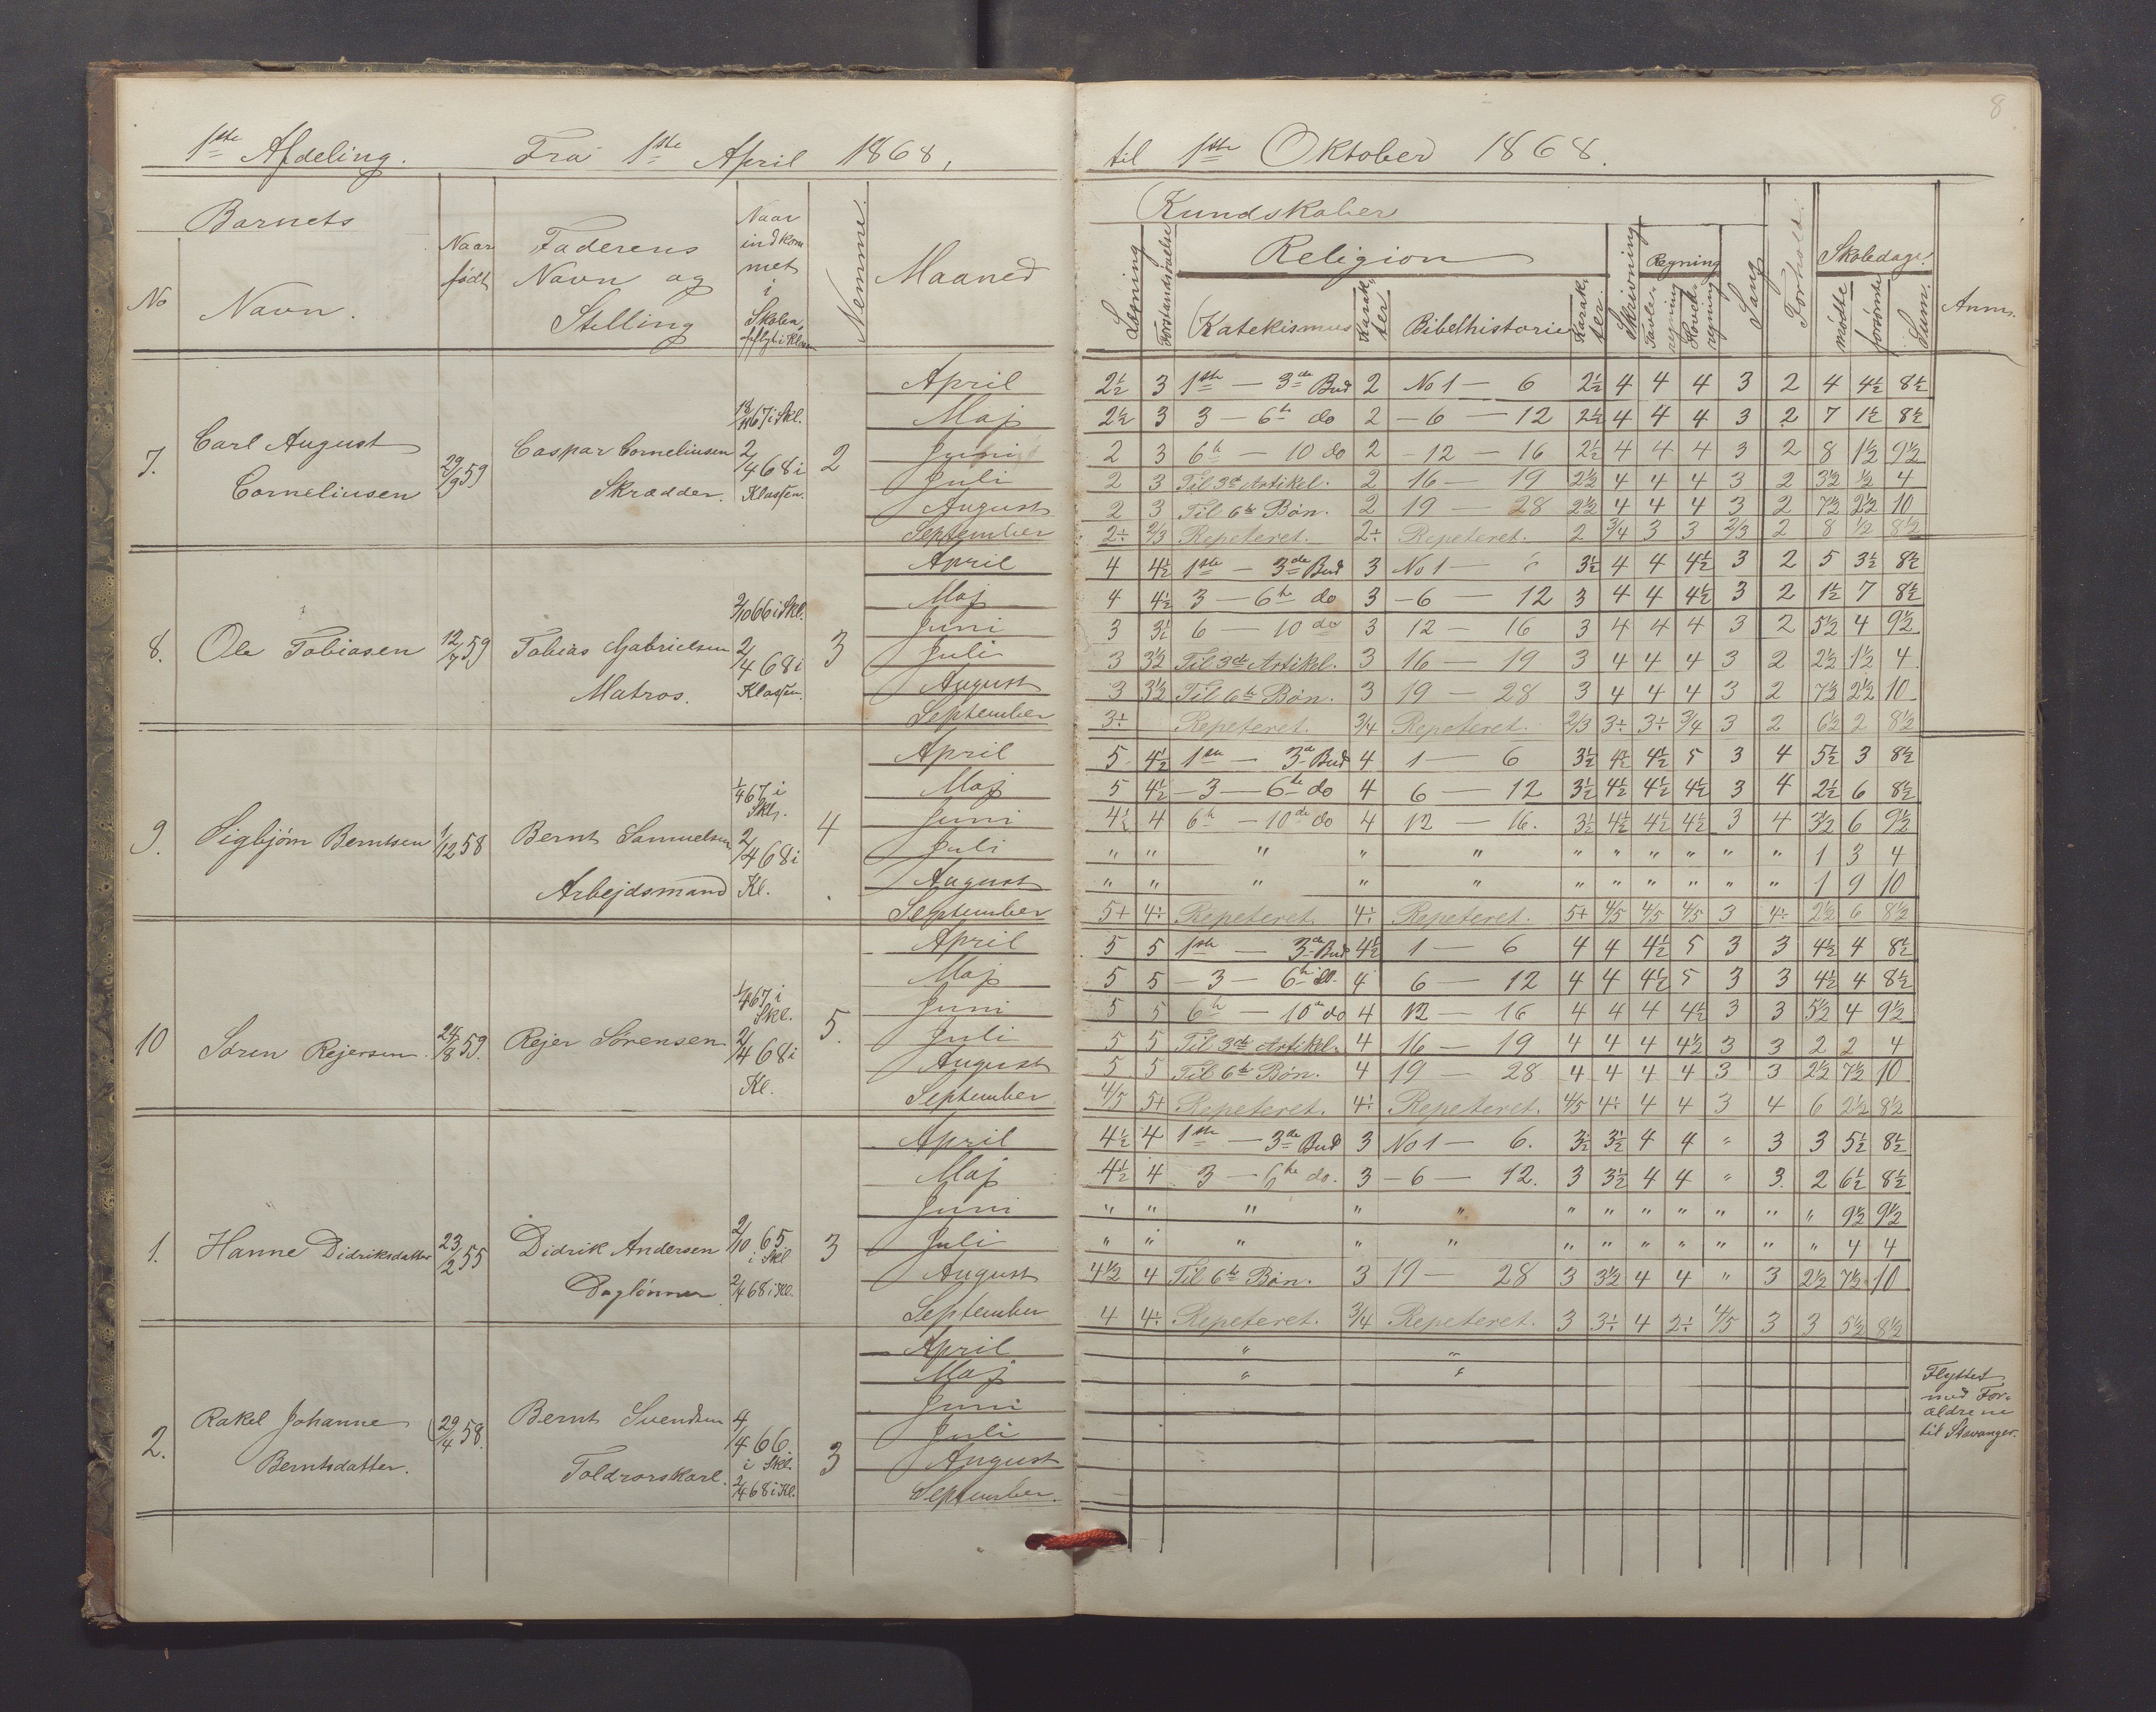 8
1ste Afdeling. Fra 1ste April 1868, til 1ste Oktober 1868.
Barnets
No
Navn.
Naar
født
Faderens
Navn og
Stilling
Naar
indkom
met
i
Skolen,
Nemme.
Maaned
Kundskaber
Læsning
Forstandsøvelse
Religion
Katekismus
Karak-
ter.
Bibelhistorie
Karak-
ter.
Skrivning
Regning
Tavle-
regning
Hoved-
regning
Sang
Forhold.
Skoledage.
mødte
forsømte
Sum.
Anm.
7. Carl August
Corneliusen
29/9 59
Caspar Corneliusen
Skrædder.
67 i Skl.
2/4 68 i
Klassen.
2
April 2½ 3 1ste — 3de Bud 2 No 1 — 6 2½ 4 4 4 3 2 4 4½ 8½
Maj 2½ 3 3 — 6te do 2 - 6 — 12 2½ 4 4 4 3 2 7 1½ 8½
Juni 2 3 6te — 10 do 2 - 12 — 16 2½ 4 4 4 3 2 8 1½ 9½
Juli 2 3 Til 3de Artikel. 2 16 — 19 2½ 4 4 4 3 2 3½ ½ 4
August 2 3 Til 6te Bøn. 2 19 — 28 2½ 4 4 4 3 2 7½ 2½ 10
September 2÷ 2/3 Repeteret. 2÷ Repeteret. 2 3/4 3 3 2/3 2 8 ½ 8½
8. Ole Tobiasen
12/7 59
Tobias Gabrielsen
Matros.
2/10 66 i Skl.
2/4 68 i
Klassen.
3
April 4 4½ 1ste — 3de Bud 3 No 1 — 6 3½ 4 4 4½ 3 2 5 3½ 8½
Maj 4 4½ 3 — 6te do 3 - 6 — 12 3 4 4 4½ 3 2 1½ 7 8½
Juni 3 3½ 6 — 10 do 3 12 — 16 3 4 4 4 3 2 5½ 4 9½
Juli 3 3½ Til 3de Artikel. 3 16 — 19 3 4 4 4 3 2 2½ 1½ 4
August 3 3½ Til 6te Bøn. 3 19 — 28 3 4 4 4 3 2 7½ 2½ 10
September 3÷ Repeteret. 3/4 Repeteret. 2/3 3÷ 3÷ 3/4 3 2 6½ 2 8½
9. Sigbjørn Berntsen
1/12 58
Bernt Samuelsen
Arbejdsmand
1/4 67 i
Skl.
2/4 68 i
Kl.
4
April 5 4½ 1ste — 3de Bud 4 1 — 6 3½ 4½ 4½ 5 3 4 5½ 3 8½
Maj 5 4½ - 3 — 6te do 4 6 — 12 3½ 4½ 4½ 4½ 3 4 2½ 6 8½
Juni 4½ 4 6te — 10de do 4 12 — 16. 3½ 4½ 4½ 4½ 3 4 3½ 6 9½
Juli " " " " " " " " " " " 1 3 4
August " " " " " " " " " " " 1 9 10
September 5+ 4÷ Repeteret. 4÷ Repeteret. 5+ 4/5 4/5 4/5 3 4÷ 2½ 6 8½
10 Søren Rejersen.
24/8 59.
Rejer Sørensen
1/4 67 i
Skl.
2/4 68 i
Kl.
5.
April 5 5 1ste — 3de Bud 4½ 1 — 6 4 4 4½ 5 3 3 4½ 4 8½
Maj 5 5 - 3 — 6te do. 4 6 — 12 4 4 4½ 5 3 3 4½ 4 8½
Juni 5 5 6te — 10de do 4 12 — 16 4 4 4 4½ 3 3 5½ 4 9½
Juli 5 5 Til 3de Artikel. 4 16 — 19 4 4 4 4½ 3 3 2 2 4
August 5 5 Til 6te Bøn. 4 19 — 28 4 4 4 4 3 3 2½ 7½ 10
September 4/5 5+ Repeteret. 4÷ Repeteret. 4/5 4÷ 4 4 3 4 6 2½ 8½
1. Hanne Didriksdatter
23/2 55
Didrik Andersen
Daglønner
2/10 65
i Skl
2/4 68 i Kl.
3
April 4½ 4 1ste — 3de Bud 3 No 1 — 6. 3½ 3½ 4 4 " 3 3 5½ 8½
Maj 4½ 4 3 — 6te do. 3 - 6 — 12. 3 3½ 4 4 " 3. 2 6½ 8½
Juni " " " " " " " " " " " " 9½ 9½
Juli " " " " " " " " " " " " 4 4
August 4½ 4 Til 6te Bøn. 3 19 — 28 3 3½ 4 4 " 3 2½ 7½ 10
September 4 4÷ Repeteret. 3/4 Repeteret. 3 3÷ 4 2÷ 4/5 3 3 5½ 8½
2. Rakel Johanne
Berntsdatter.
29/4 58.
Bernt Svendsen
Toldrorskarl.
4/4 66.
i Skl.
2/4 68 i Kl.
3
April " "
Maj " "
Juni
Juli
August
September.
Flyttet
med For-
ældrene
til Stavanger.